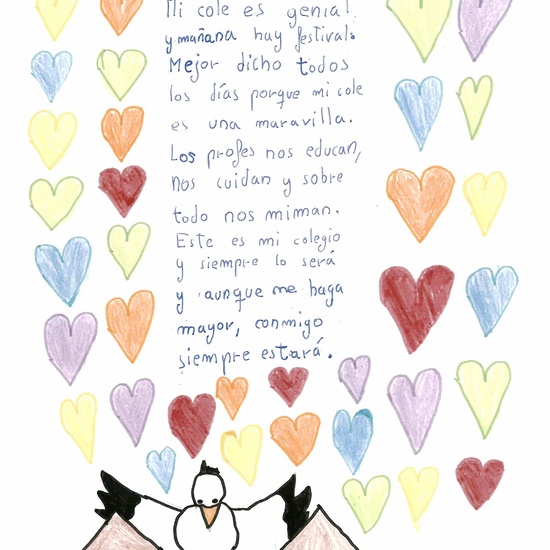 Mi cole es genial
y mañana hay festival.
Mejor dicho todos
los días porque mi cole
es una maravilla.
Los profes nos educan,
nos cuidan y sobre
todo nos miman.
Este es mi colegio
y siempre lo será
y aunque me haga
mayor, conmigo
siempre estará.